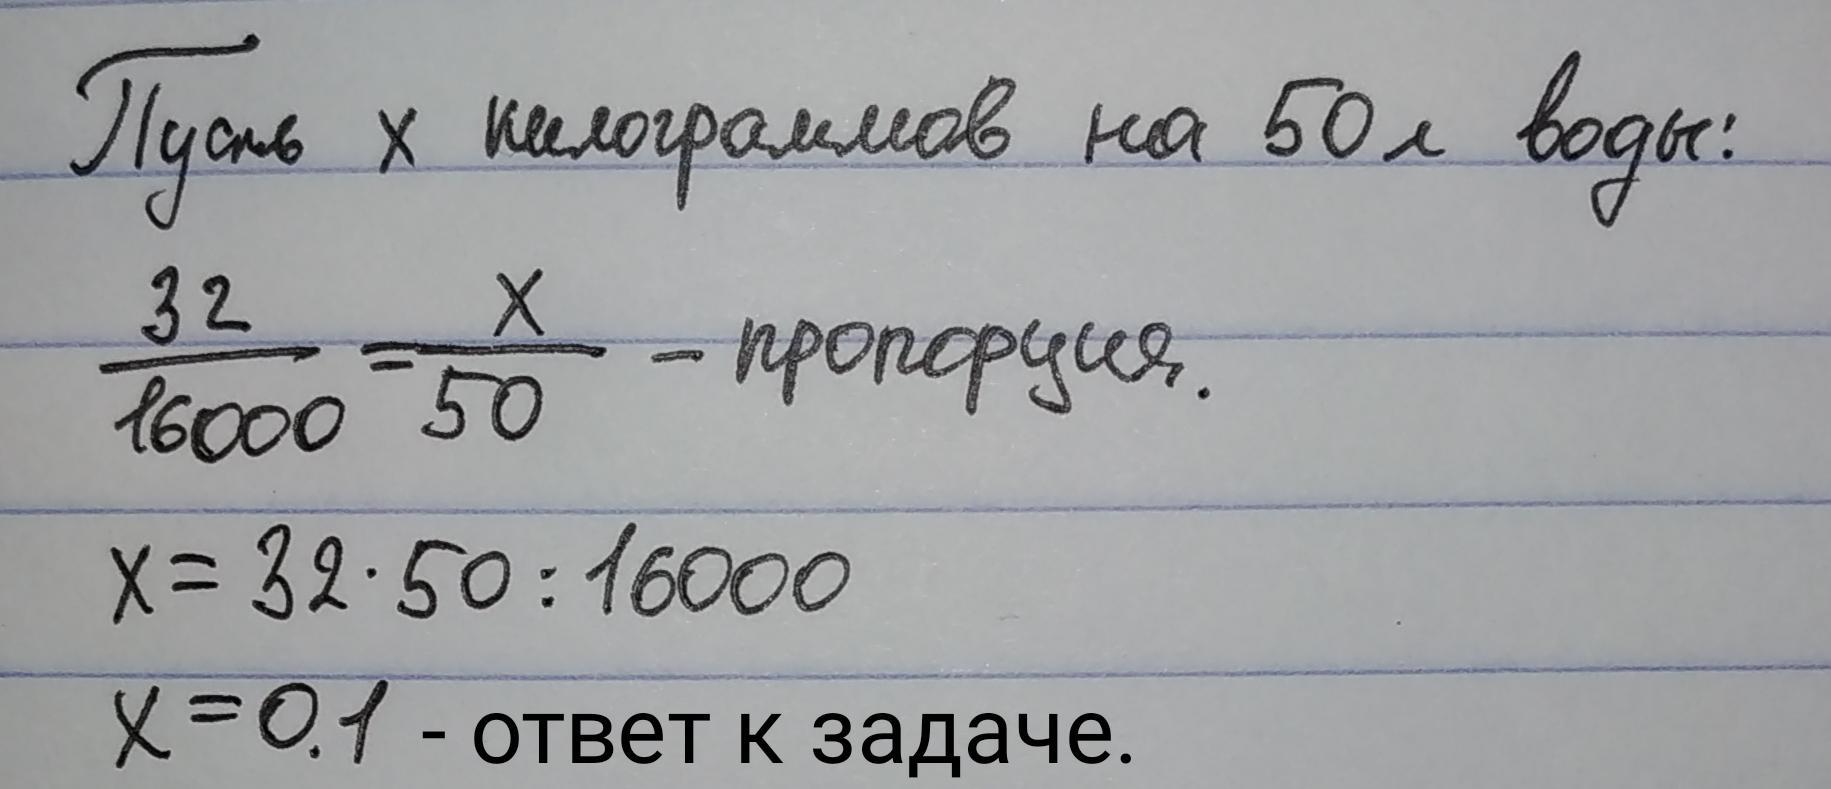 Пусть x килограммов на 50 л воды:
32/16000 = x/50 - пропорция.
x = 32 · 50 : 16000
x = 0.1 - ответ к задаче.